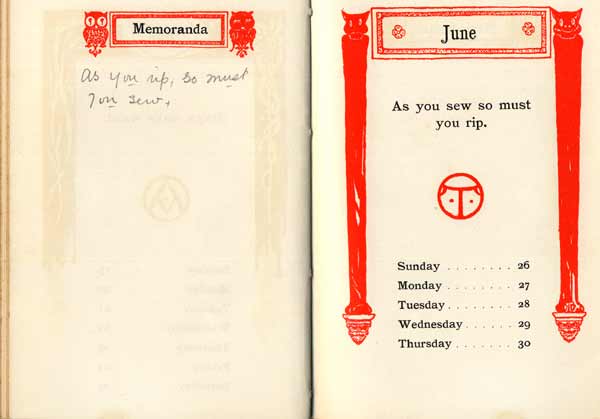 Memoranda
As you rip, so must
you sew.
June
As you sew so must
you rip.
Sunday . . . . . . . . 26
Monday . . . . . . . 27
Tuesday . . . . . . . 28
Wednesday . . . . . 29
Thursday . . . . . . 30